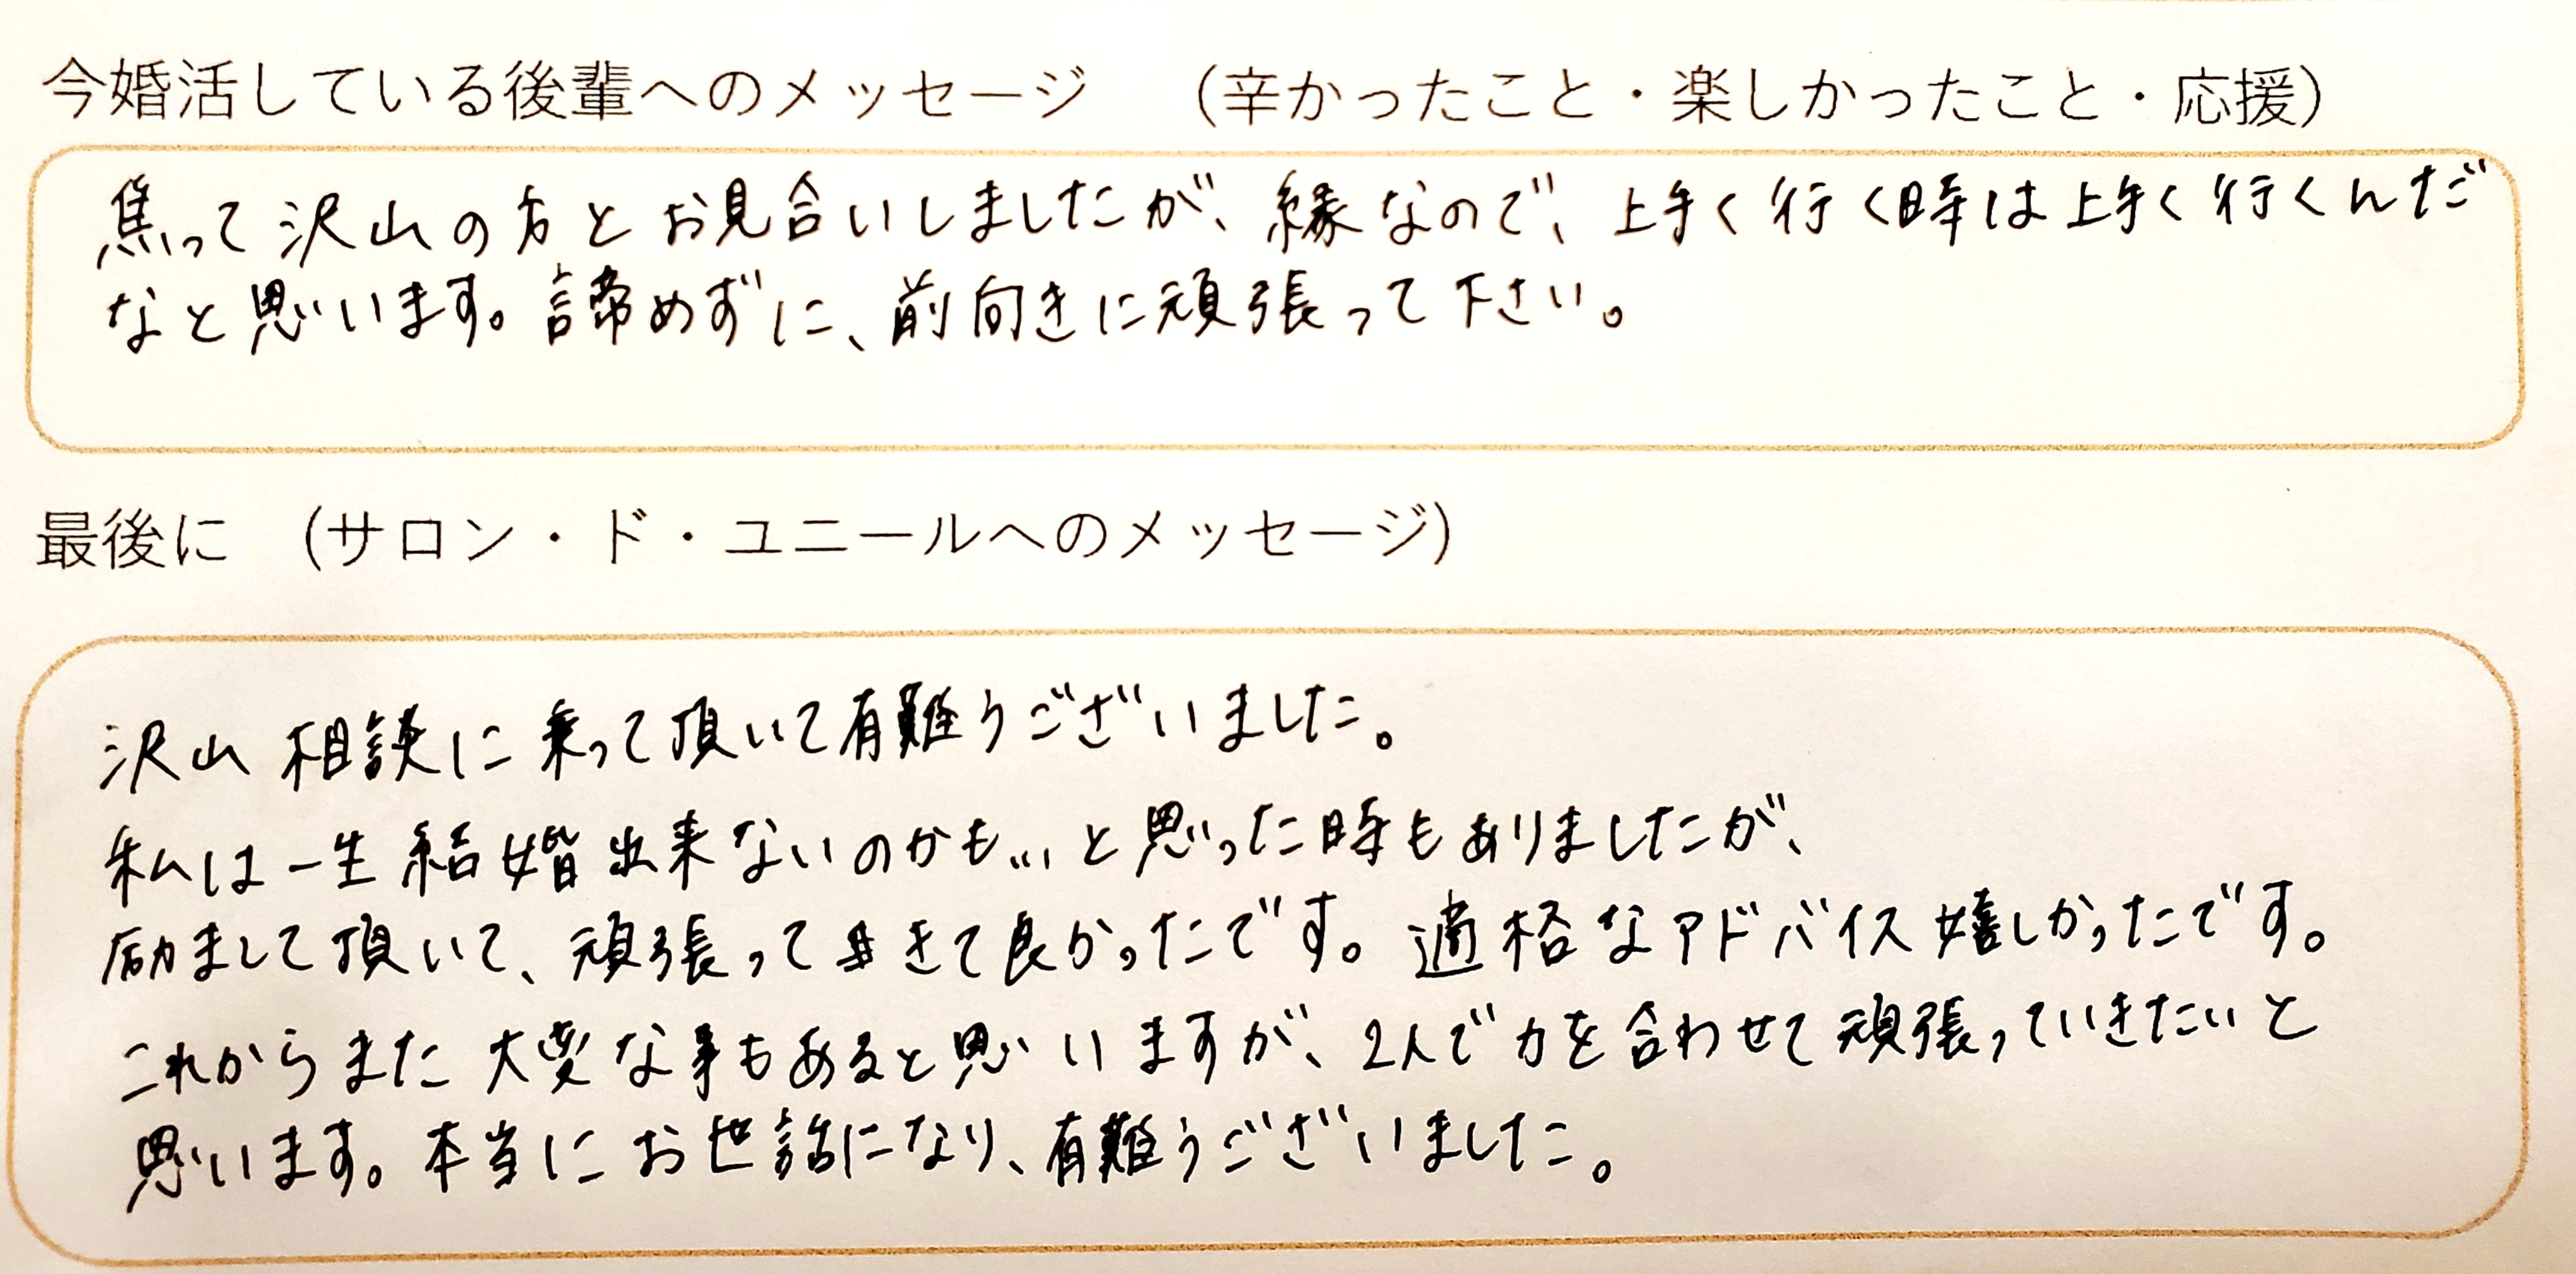 今婚活している後輩へのメッセージ　（辛かったこと・楽しかったこと・応援）
焦って沢山の方とお見合いしましたが、縁なので、上手く行く時は上手く行くんだ
なと思います。諦めずに、前向きに頑張って下さい。
最後に　（サロン・ド・ユニールへのメッセージ）
沢山相談に乗って頂いて有難うございました。
私は一生結婚出来ないのかも…と思った時もありましたが、
励まして頂いて、頑張ってきて良かったです。適格なアドバイス嬉しかったです。
これからまた大変な事もあると思いますが、2人で力を合わせて頑張っていきたいと
思います。本当にお世話になり、有難うございました。